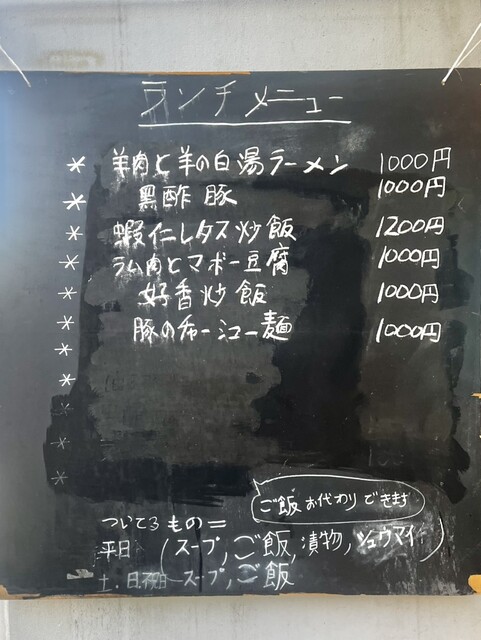 ランチメニュー
* 羊肉と羊の白湯ラーメン 1000円
* 黒酢豚 1000円
* 蝦仁レタス炒飯 1200円
* ラム肉とマボー豆腐 1000円
* 好香炒飯 1000円
* 豚のチャーシュー麺 1000円
*
*
*
*
*
ご飯お代わりできます
ついてるもの=
平日 (スープ,ご飯,漬物,シュウマイ)
土.日 スープ,ご飯